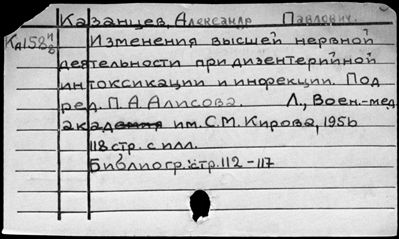 Казанцев, Александр Павлович.
Изменения высшей нервной
деятельности при дизентерийной
интоксикации и инфекции. Под
ред. П.А.Алисова. Л., Воен.-мед.
академия им. С.М. Кирова, 1956
118 стр. с илл.
Библиогр.: стр. 112-117